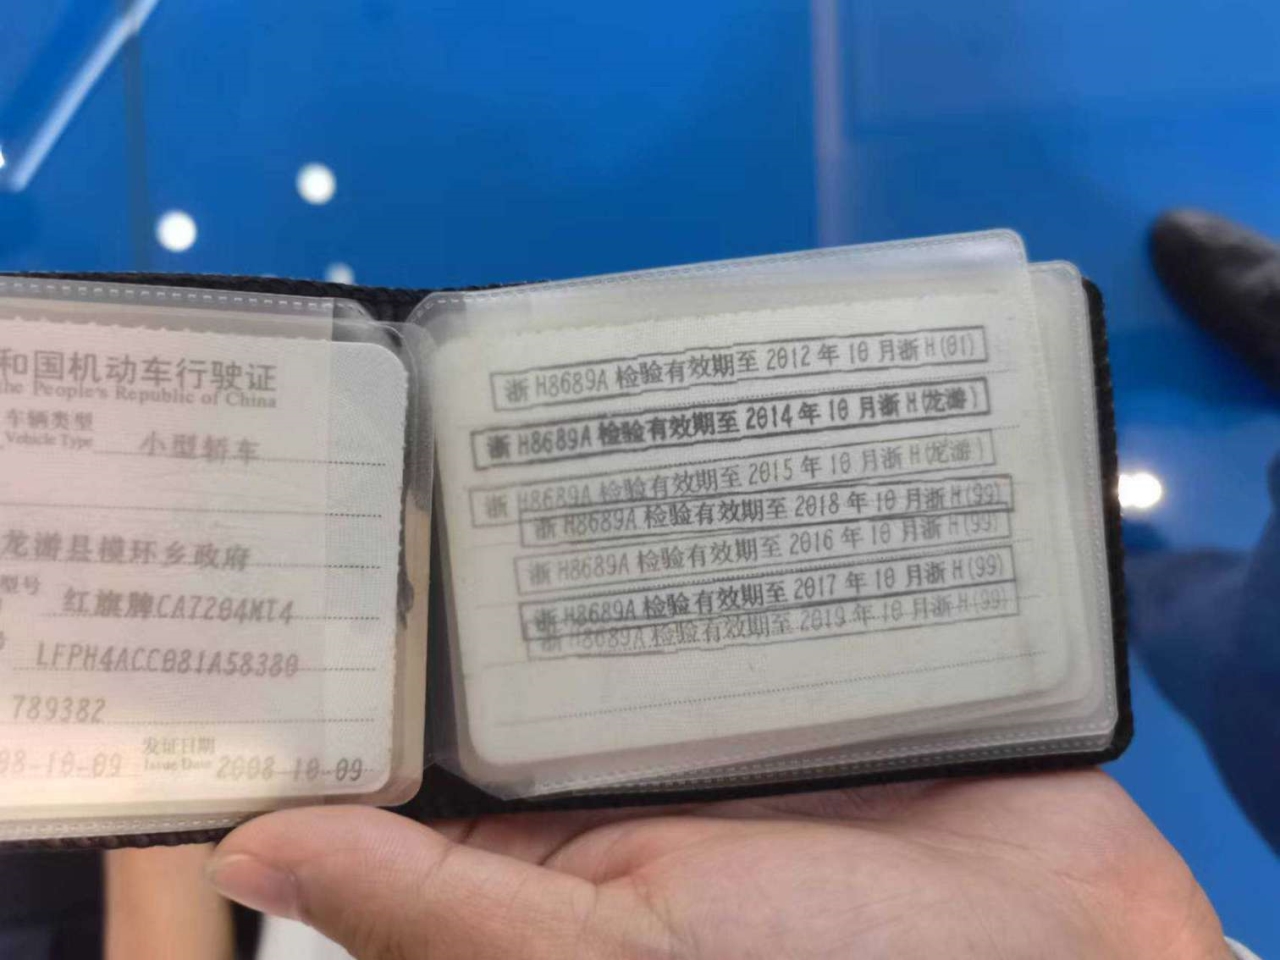 和国机动车行驶证
he People's Republic of China
车辆类型
Vehicle Type
小型轿车
龙游县模环乡政府
型号
红旗牌CA7204MT4
LFPH4ACC081A58380
789382
发证日期
Issue Date
08-10-09
2008-10-09
浙 H8689A 检验有效期至 2012 年 10 月浙 H(01)
浙 H8689A 检验有效期至 2014 年 10 月浙 H(龙游)
浙 H8689A 检验有效期至 2015 年 10 月浙 H(龙游)
浙 H8689A 检验有效期至 2018 年 10 月浙 H(99)
浙 H8689A 检验有效期至 2016 年 10 月浙 H(99)
浙 H8689A 检验有效期至 2017 年 10 月浙 H(99)
浙 H8689A 检验有效期至 2019 年 10 月浙 H(99)